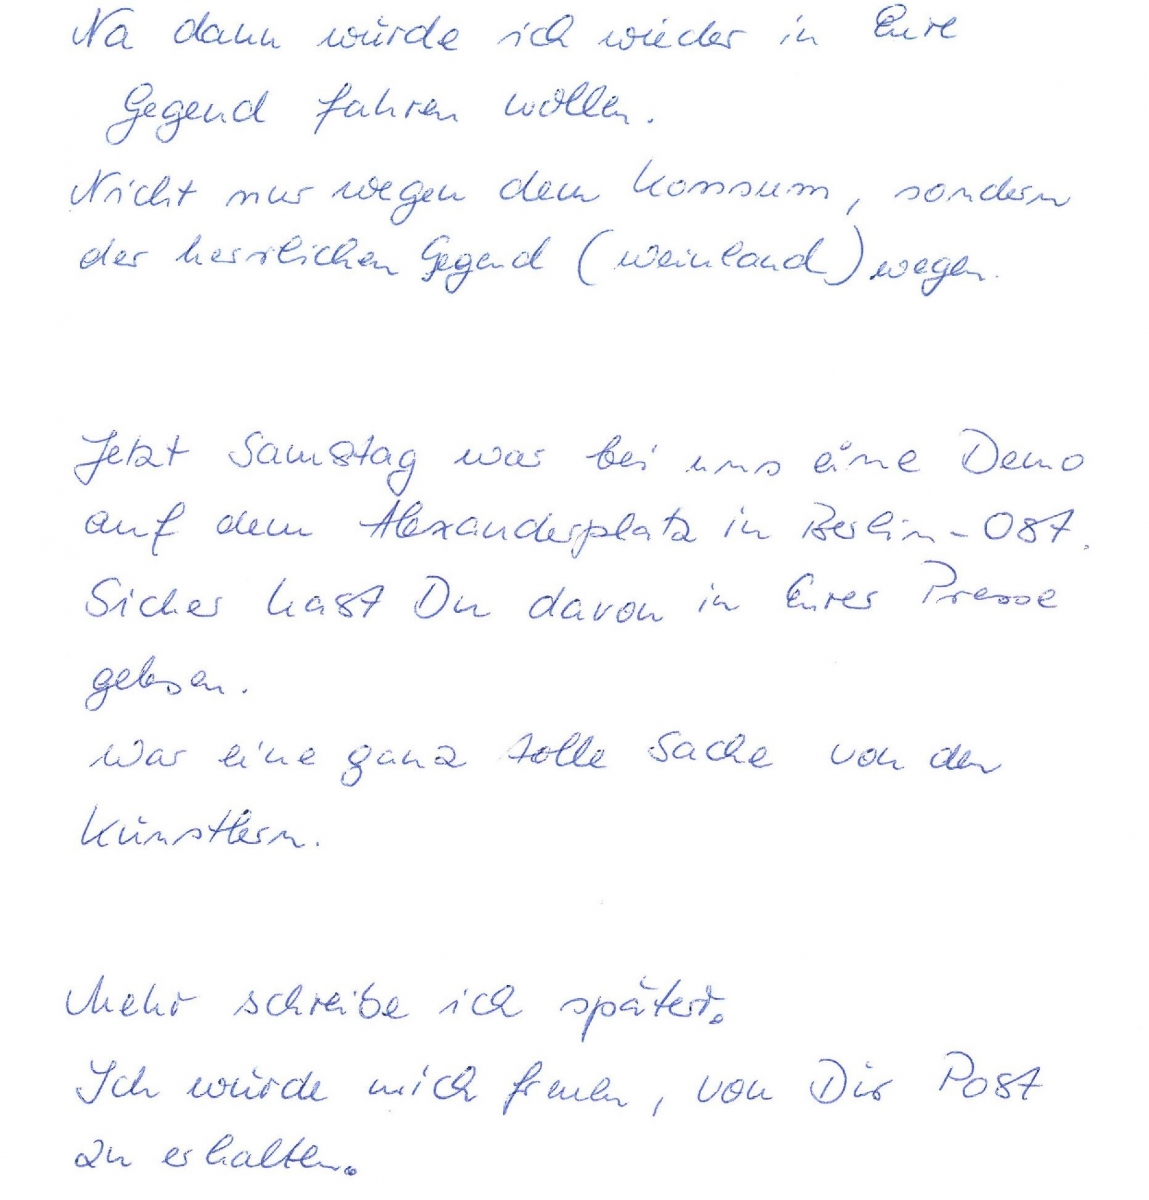 Na dann würde ich wieder in Eure
Gegend fahren wollen.
Nicht nur wegen dem Konsum, sondern
der herrlichen Gegend (Weinland) wegen.
Jetzt Samstag war bei uns eine Demo
auf dem Alexanderplatz in Berlin-Ost.
Sicher hast Du davon in Eurer Presse
gelesen.
War eine ganz tolle Sache von den
Künstlern.
Mehr schreibe ich später.
Ich würde mich freuen, von Dir Post
zu erhalten.